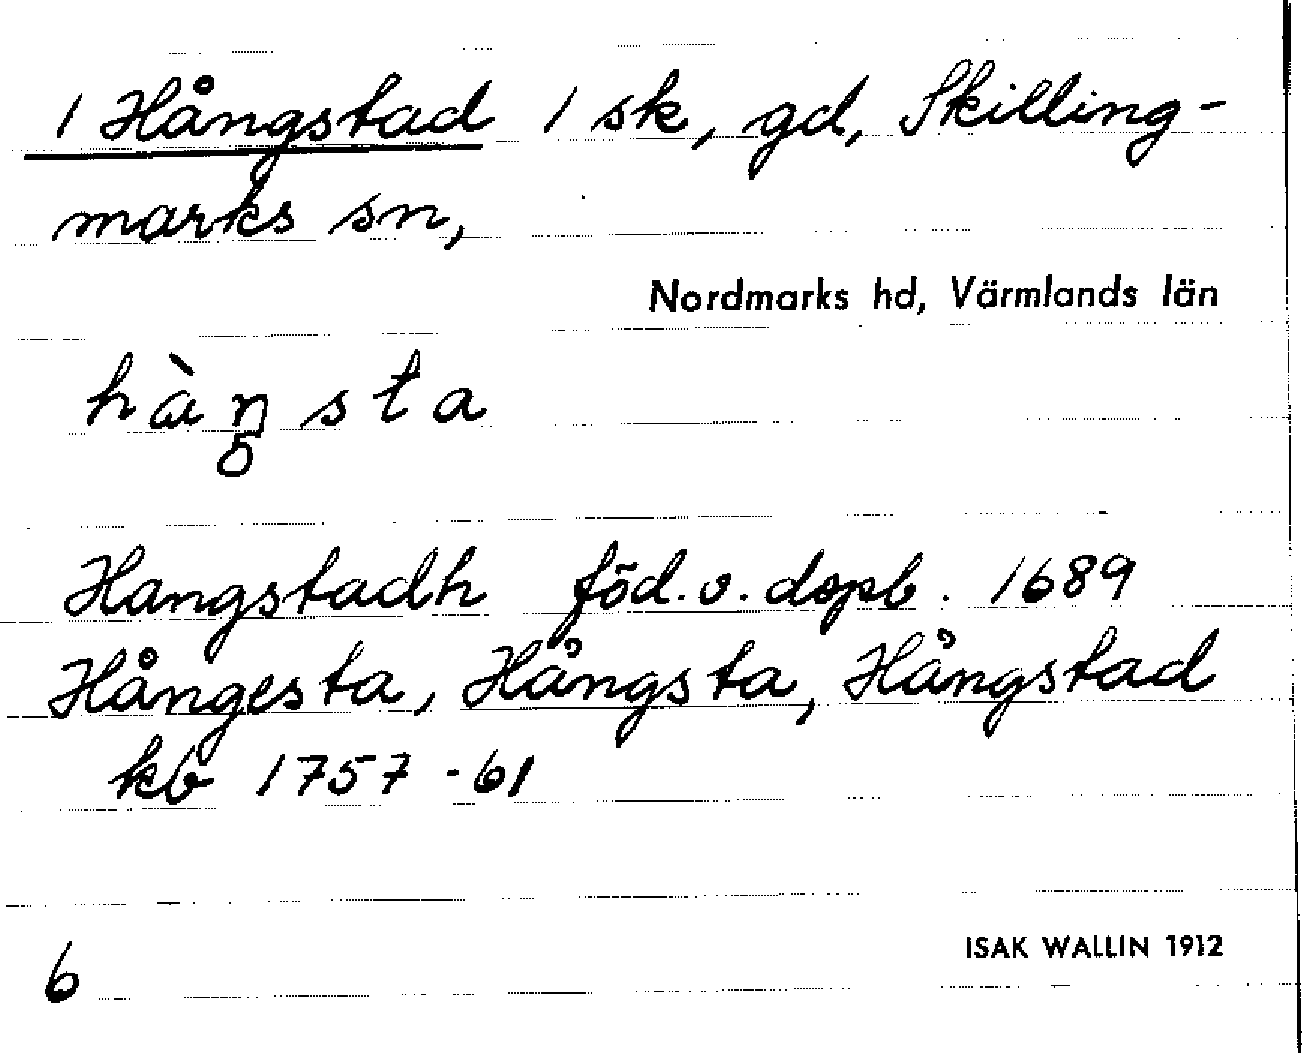 1 Hångstad 1 sk, gd, Skilling-
marks sn,
Nordmarks hd, Värmlands län
hàŋsta
Hangstadh föd. o. dopb. 1689
Hångesta, Hångsta, Hångstad
kb 1757-61
6
ISAK WALLIN 1912